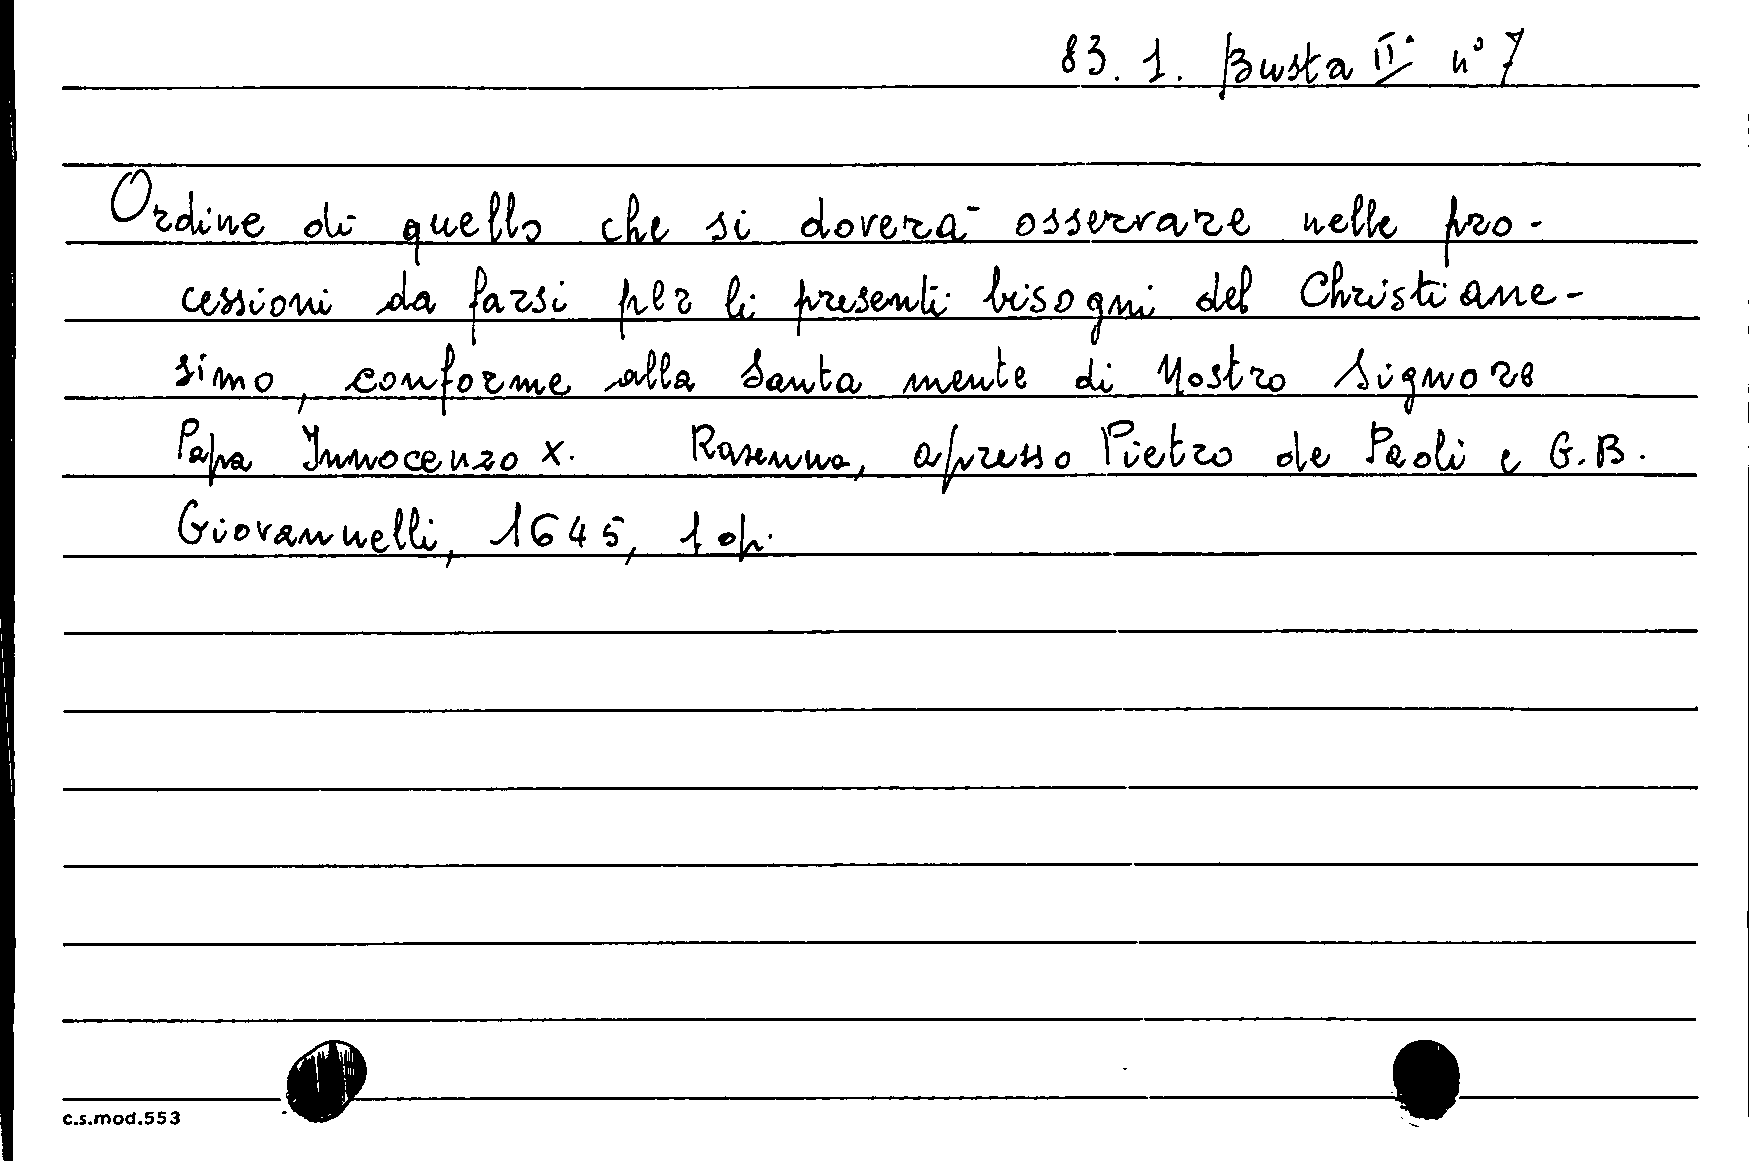 83. 1. Busta II. n° 7
Ordine di quello che si doverà osservare nelle pro-
cessioni da farsi per li presenti bisogni del Christiane-
simo, conforme alla Santa mente di Nostro Signore
Papa Innocenzo X. Ravenna, apresso Pietro de Paoli e G.B.
Giovannelli, 1645, 1 op.
c.s.mod.553